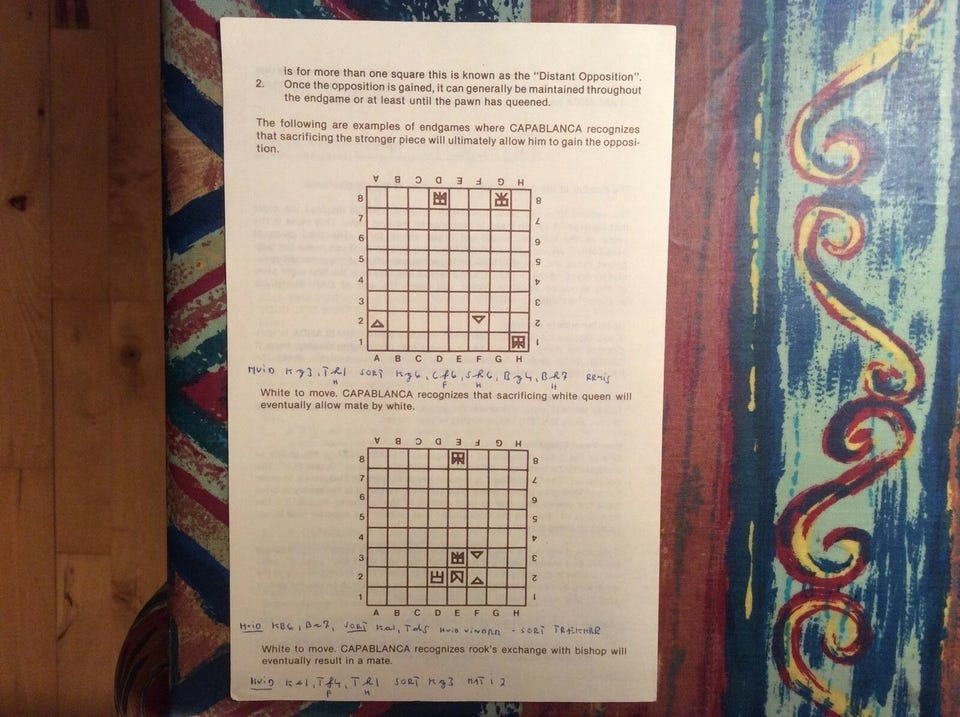 is for more than one square this is known as the "Distant Opposition".
2. Once the opposition is gained, it can generally be maintained throughout
the endgame or at least until the pawn has queened.
The following are examples of endgames where CAPABLANCA recognizes
that sacrificing the stronger piece will ultimately allow him to gain the opposi-
tion.
A B C D E F G H
8 8
7 7
6 6
5 5
4 4
3 3
2 2
1 1
A B C D E F G H
HVID Kg3, Th1 SORT Kg6, Cf6, Sh6, Bg4, Bh7
H F H H
White to move. CAPABLANCA recognizes that sacrificing white queen will
eventually allow mate by white.
A B C D E F G H
8 8
7 7
6 6
5 5
4 4
3 3
2 2
1 1
A B C D E F G H
HVID KB6, SORT Ka1, HVID VINDER - SORT TRÆKKER
White to move. CAPABLANCA recognizes rook's exchange with bishop will
eventually result in a mate.
HVID Ke1, Tf4, Th1 SORT Kg3 MAT I 2
F H